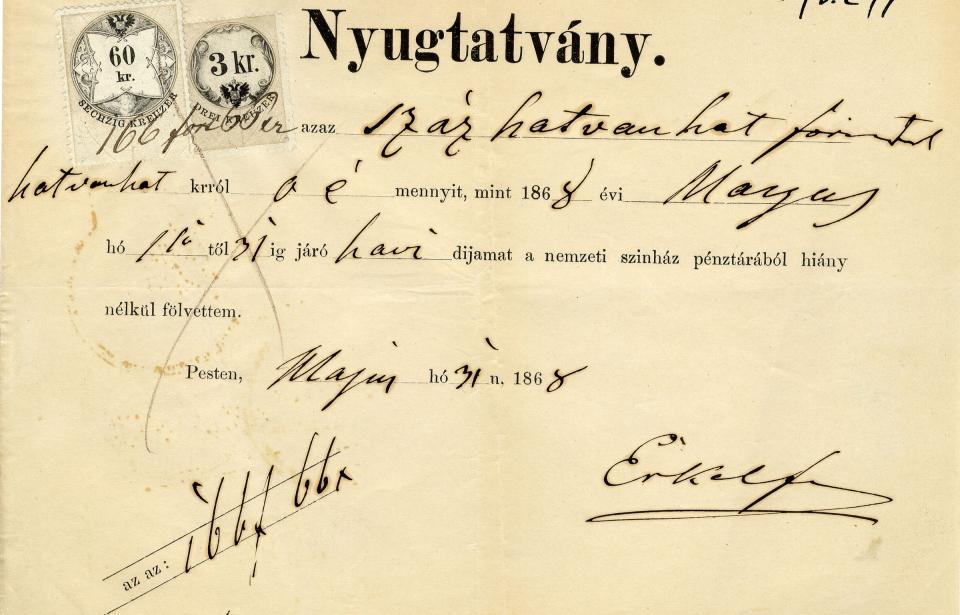 60
kr.
SECHZIG KREUZER
3 kr.
DREI KREUZER
Nyugtatvány.
166 for 66 kr azaz száz hatvanhat forintról
hatvanhat krról o é mennyit, mint 1868 évi Majus
hó 1ső től 31 ig járó havi dijamat a nemzeti szinház pénztárából hiány
nélkül fölvettem.
Pesten, Majus hó 31 n, 1868
Erkel F
az az: 166 f 66 x